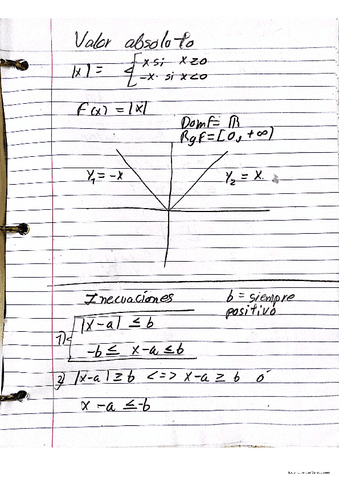 Valor absoluto
|x| = { x si x≥0
-x si x<0
F(x) = |x|
Dom F = ℝ
Rg F = [0, +∞)
Y₁ = -x
Y₂ = x
Inecuaciones
b = siempre
positivo
1) |x-a| ≤ b
-b ≤ x-a ≤ b
2) |x-a| ≥ b <=> x-a ≥ b ó
x-a ≤ -b